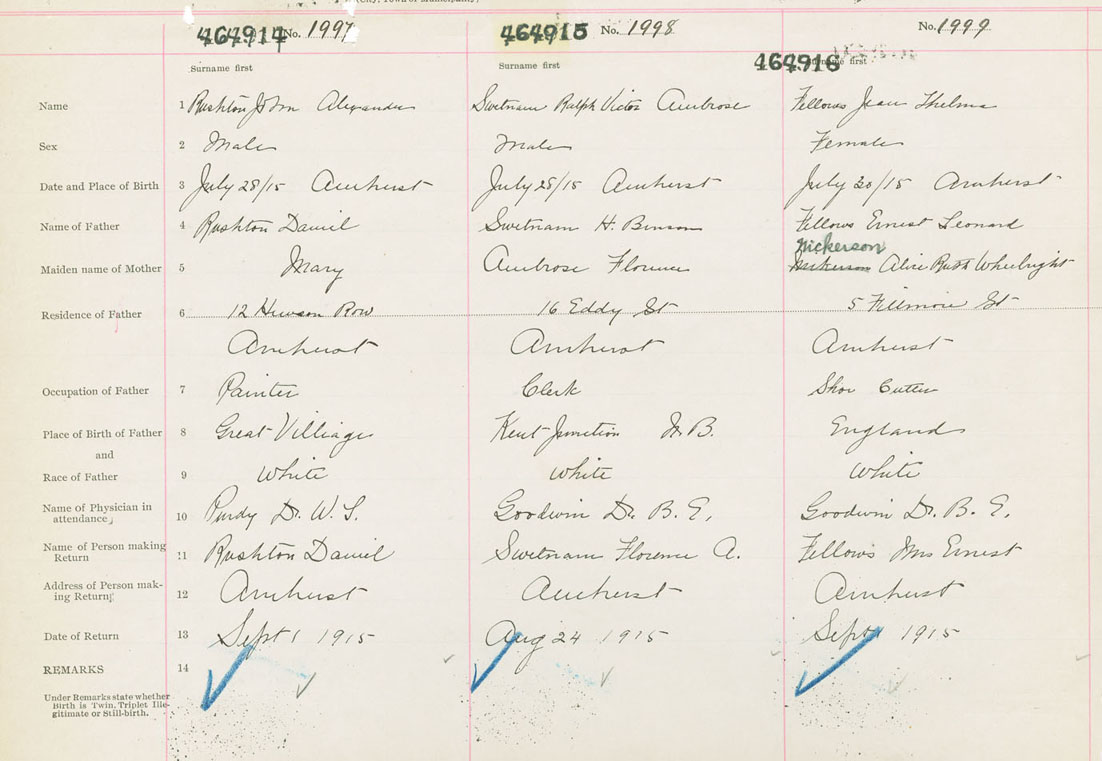 464914 No. 1997 464915 No. 1998 No. 1999
Surname first Surname first 464916 Surname first
Name 1 Rushton John Alexander Swetnam Ralph Victor Ambrose Fellows Jean Thelma
Sex 2 Male Male Female
Date and Place of Birth 3 July 28/15 Amherst July 28/15 Amherst July 30/15 Amherst
Name of Father 4 Rushton Daniel Swetnam H. Benson Fellows Ernest Leonard
Nickerson
Maiden name of Mother 5 Mary Ambrose Florence Nickerson Alice Ruth Wheelright
Residence of Father 6 12 Hewson Row 16 Eddy St 5 Fillmore St
Amherst Amherst Amherst
Occupation of Father 7 Painter Clerk Shoe Cutter
Place of Birth of Father 8 Great Villiage Kent Junction N.B. England
and
Race of Father 9 White White White
Name of Physician in
attendance, 10 Purdy Dr. W. S. Goodwin Dr. B. E. Goodwin Dr. B. E.
Name of Person making
Return 11 Rushton Daniel Swetnam Florence A. Fellows Mrs Ernest
Address of Person mak-
ing Return; 12 Amherst Amherst Amherst
Date of Return 13 Sept 1 1915 Aug 24 1915 Sept 1 1915
REMARKS 14
Under Remarks state whether
Birth is Twin, Triplet Ille-
gitimate or Still-birth.